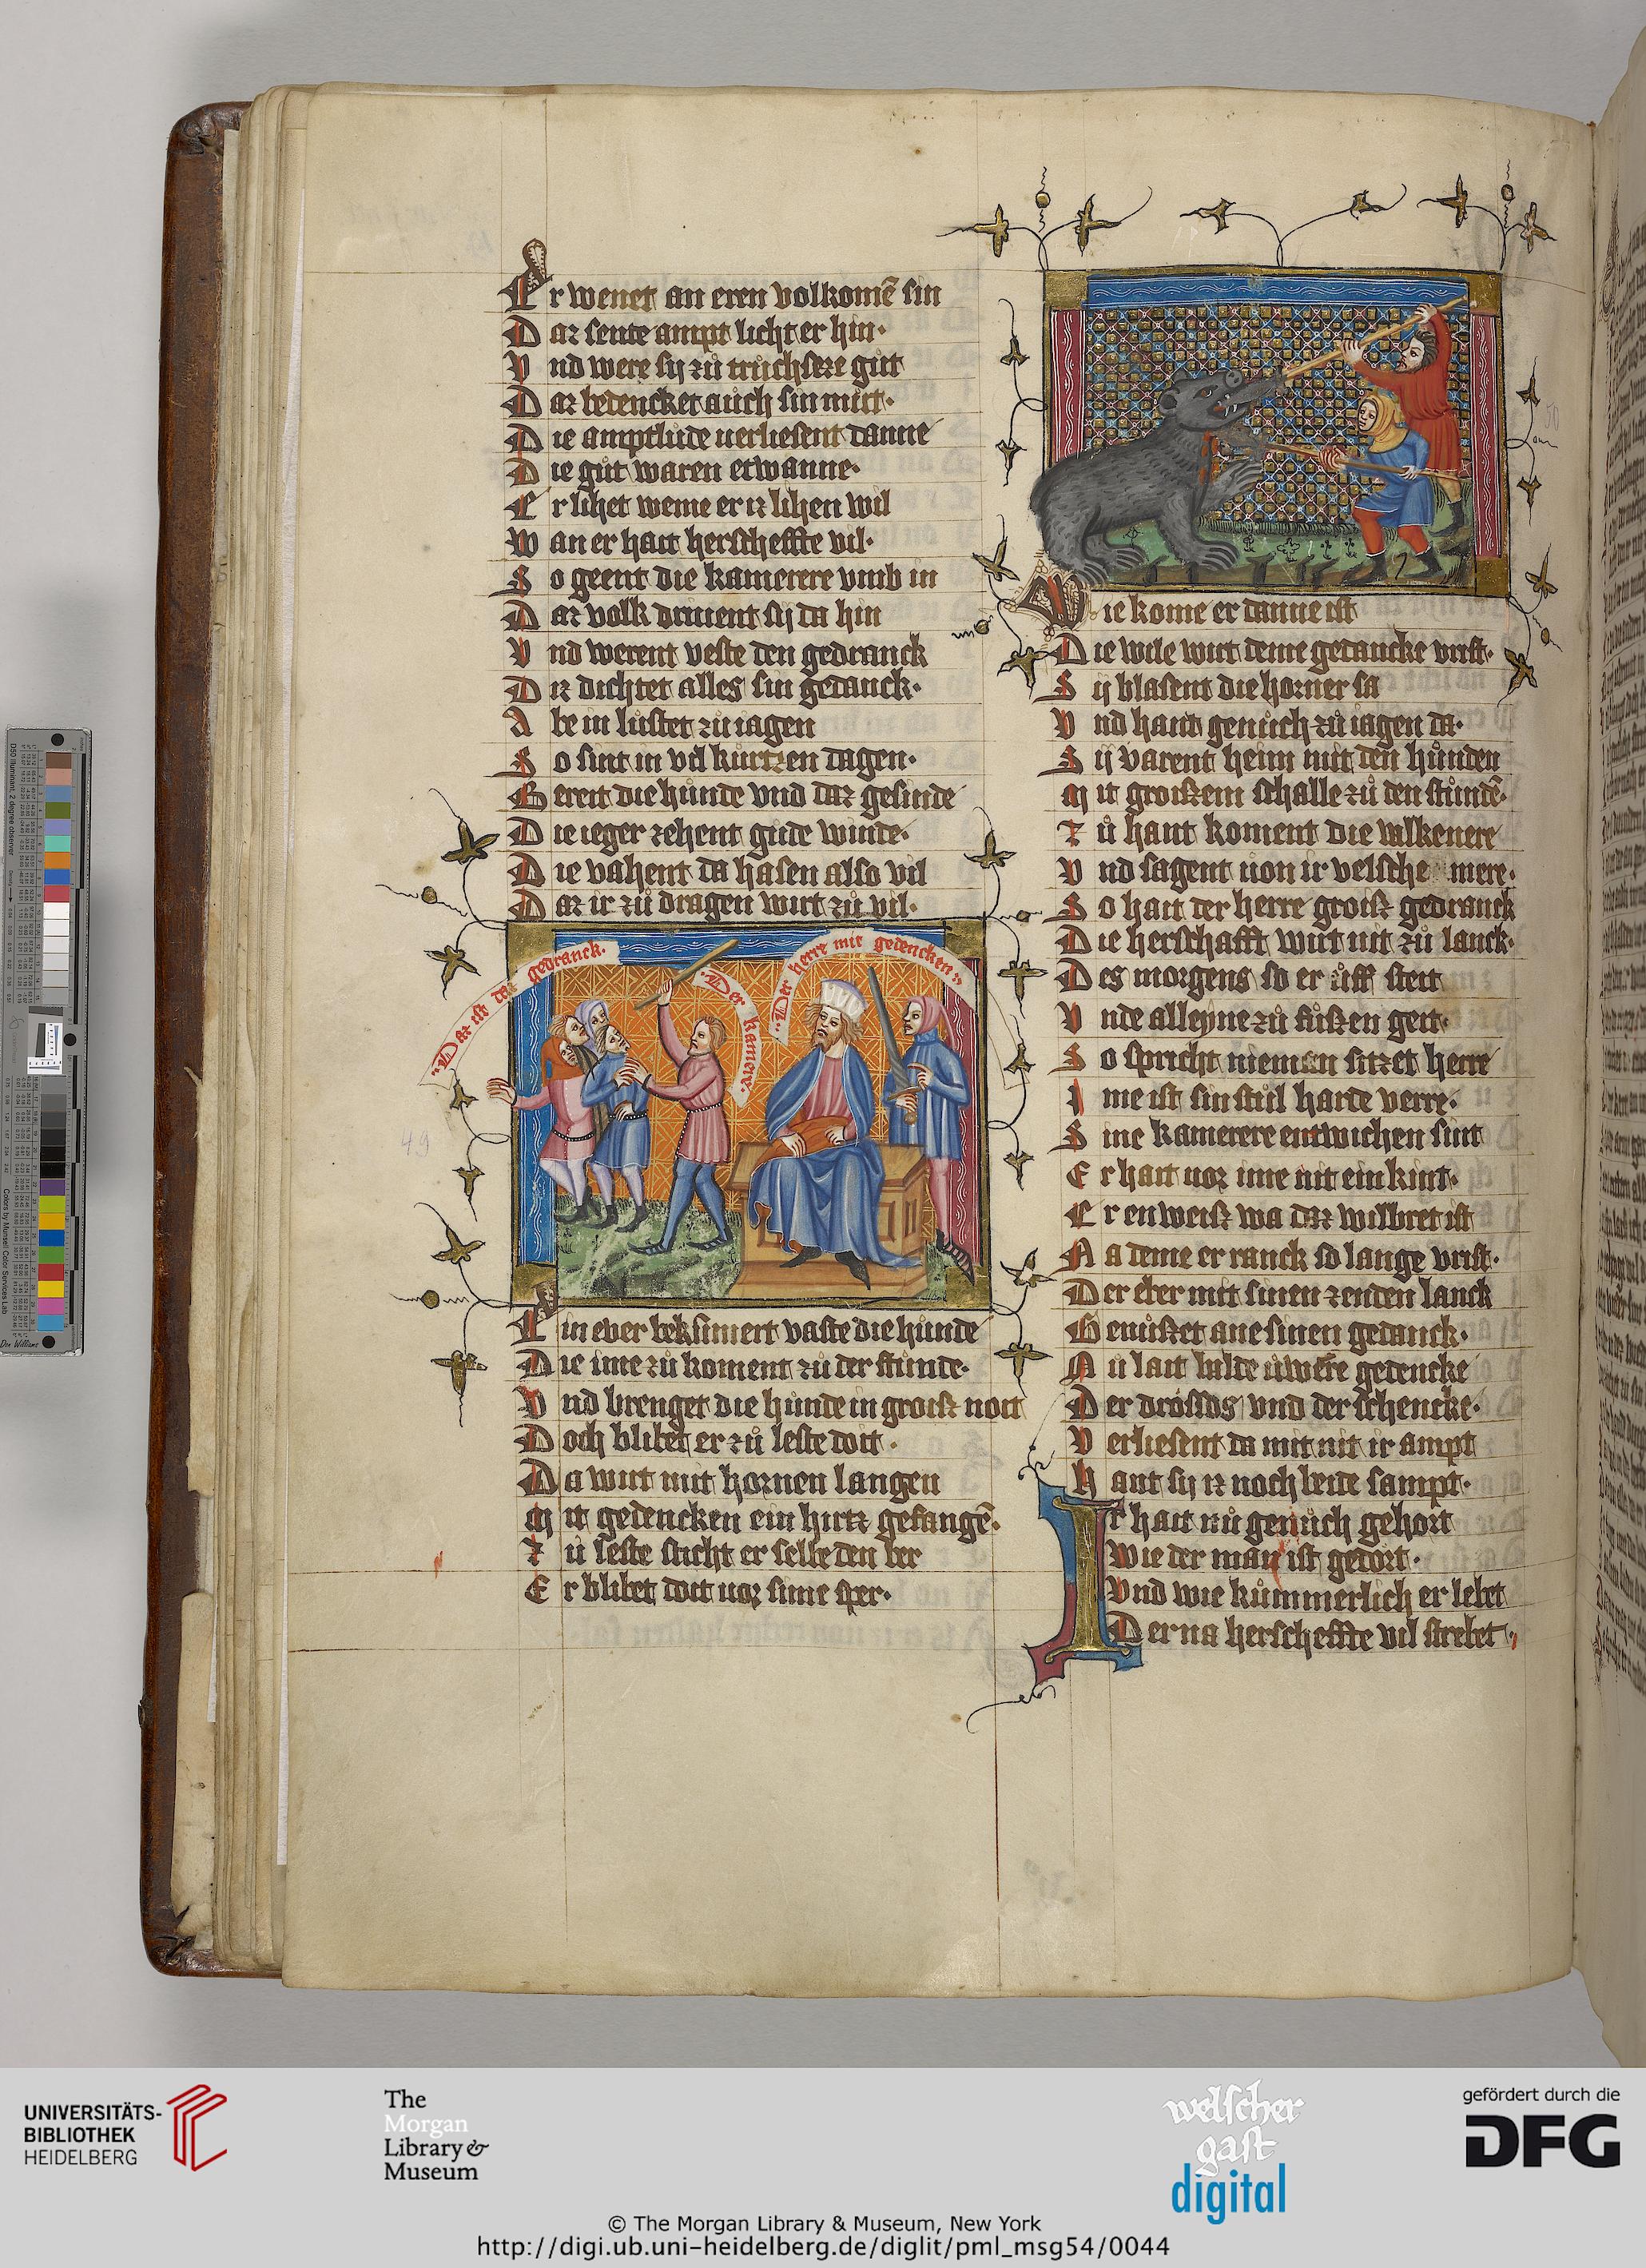 Er wenet an eren volkomē sin
Daz sente ampt licht er hin·
Vnd were sij zů truchseze gůt
Daz bedencket auch sin můt·
Die amptlude uerliesent danne
Die gůt waren etwanne·
Er lihet weme er iz lihen wil
Wan er hait herscheffte vil·
So geent die kamerere vmb in
Daz volk driuent sij da hin
Vnd werent veste den gedranck
Diz dichtet alles sin gedanck·
Abe in lustet zů iagen
So sint in vil kurtzen dagen·
Bereit die hůnde vnd daz gesinde
Die ieger zehent gůde winde·
Die vahent da hasen also vil
Daz ir zů dragen wirt zů vil·
Daz ist der gedranck·
Der kamere·
Der herre mit gedencken
Ein eber bekůmert vaste die hůnde
Die ime zů koment zů der stůnde·
Vnd brenget die hůnde in groiß noit
Doch blibet er zů leste doit·
Da wirt mit hornen langen
Mit gedencken ein hirtz gefangē·
Zů leste sticht er selbe den ber
Er blibet doit uor sime sper·
Wie kome er danne ist
Die wile wirt deme gedancke vrist·
Sij blasent die horner sa
Vnd hant genůch zů iagen da·
Sij varent heim mit den hůnden
Mit groißem schalle zů den stůndē·
Zů hant koment die valkenere
Vnd sagent uon ir velsche mere·
So hait der herre groiß gedranck
Die herschafft wirt nit zů lanck·
Des morgens so er ůff steit
Vnde alleyne zů fůßen geit·
So spricht nieman sitzet herre
Ime ist sin stůl harde verre·
Sine kamerere entwichen sint
Er hait uor ime nit ein kint·
Er enweiß wa daz wilbret ist
Na deme er ranck so lange vrist·
Der eber mitt sinen zenden lanck
Genůßet ane sinen gedanck·
Nů lait balde ůwere gedencke
Der drossas vnd der schencke·
Verliesent da mit nit ir ampt
Hant sij iz noch beide sampt·
Ir hait nů genůch gehort
Wie der man ist gedort·
Vnd wie kůmmerlich er lebet
Der na herscheffte vil strebet·
49
50
UNIVERSITÄTS-
BIBLIOTHEK
HEIDELBERG
The
Morgan
Library &
Museum
welscher
gast
digital
gefördert durch die
DFG
© The Morgan Library & Museum, New York
http://digi.ub.uni-heidelberg.de/diglit/pml_msg54/0044